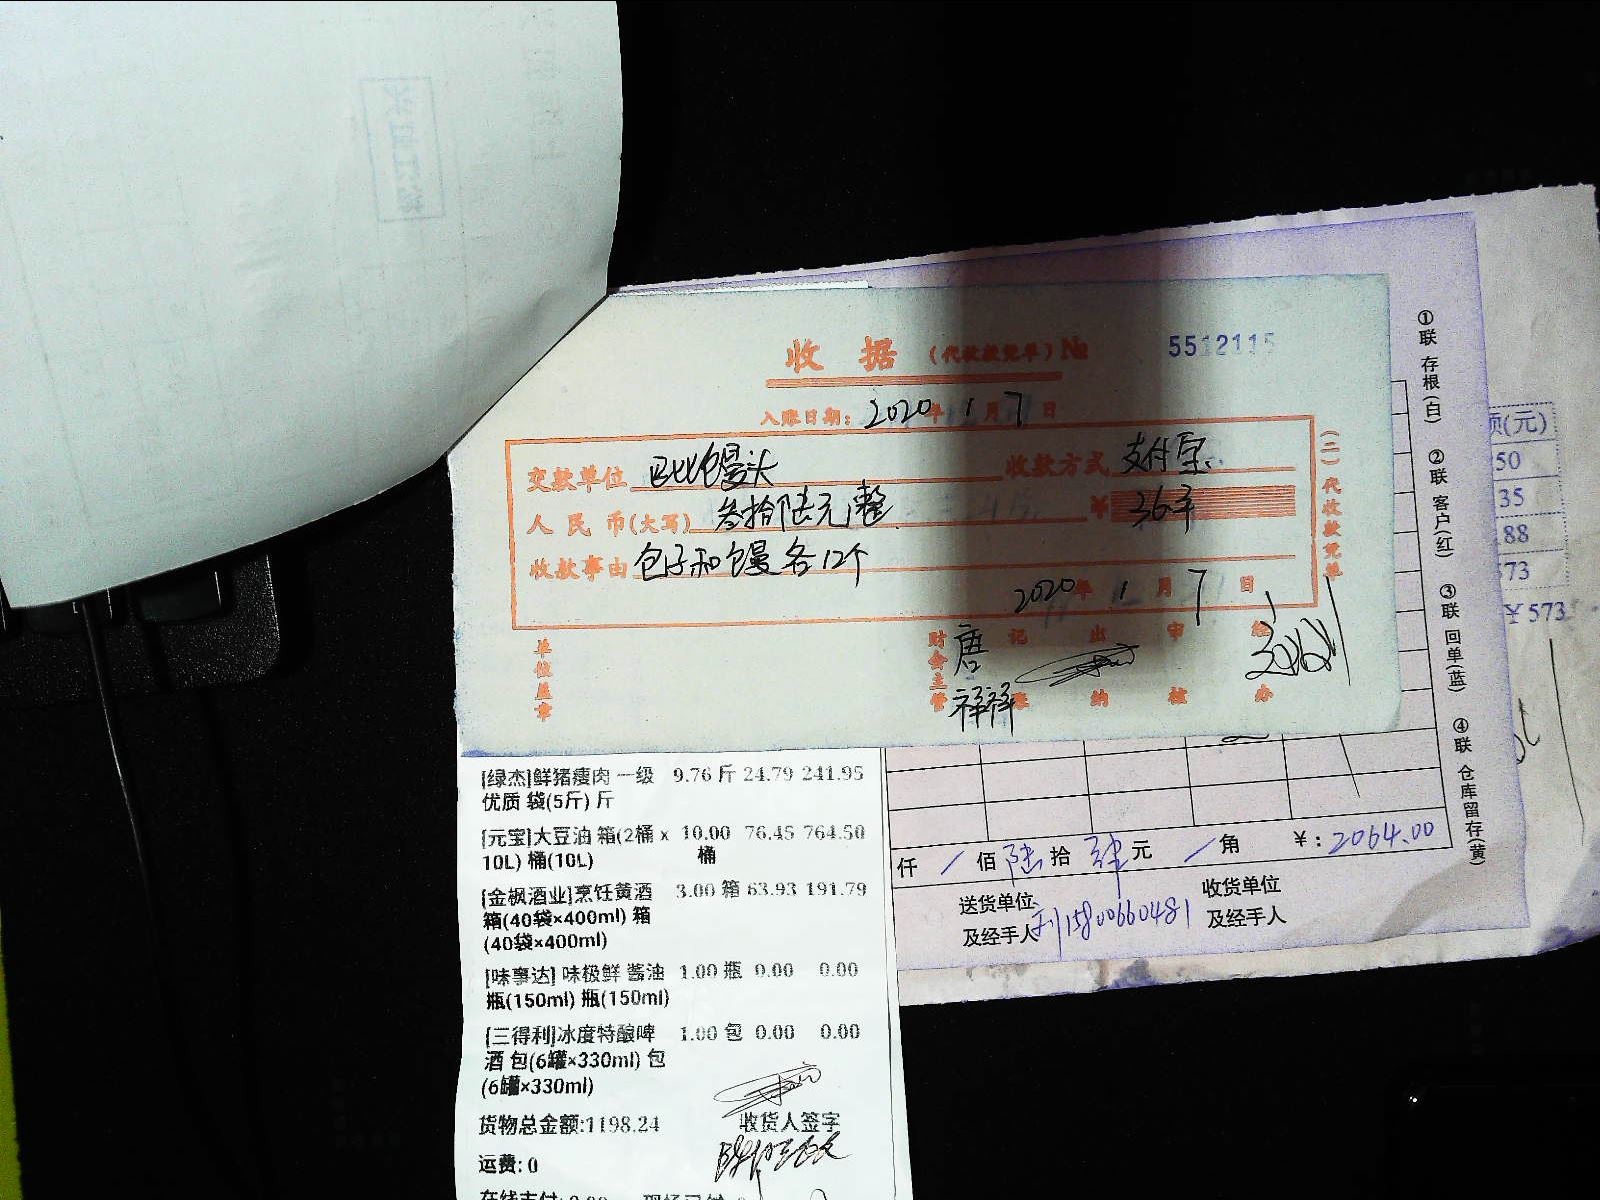 收 据 (代收款凭单) № 5512115
入账日期: 2020 年 1 月 7 日
交款单位 巴比馒头 收款方式 支付宝
人民币(大写) 叁拾陆元整 ¥ 36平
收款事由 包子和馒各12个
2020 年 1 月 7 日
单位盖章 财会主管 唐祥祥 记账 出纳 审核 经办
(二)代收款凭单
①联 存根(白) ②联 客户(红) ③联 回单(蓝) ④联 仓库留存(黄)
(元)
50
35
88
573
¥573
[绿杰]鲜猪瘦肉 一级 9.76 斤 24.79 241.95
优质 袋(5斤) 斤
[元宝]大豆油 箱(2桶 x 10.00 76.45 764.50
10L) 桶(10L) 桶
[金枫酒业]烹饪黄酒 3.00 箱 63.93 191.79
箱(40袋×400ml) 箱
(40袋×400ml)
[味事达] 味极鲜 酱油 1.00 瓶 0.00 0.00
瓶(150ml) 瓶(150ml)
[三得利]冰度特酿啤 1.00 包 0.00 0.00
酒 包(6罐×330ml) 包
(6罐×330ml)
货物总金额:1198.24 收货人签字
运费: 0
仟 / 佰 陆 拾 肆 元 / 角 ¥: 2064.00
送货单位 收货单位
及经手人 15800660481 及经手人